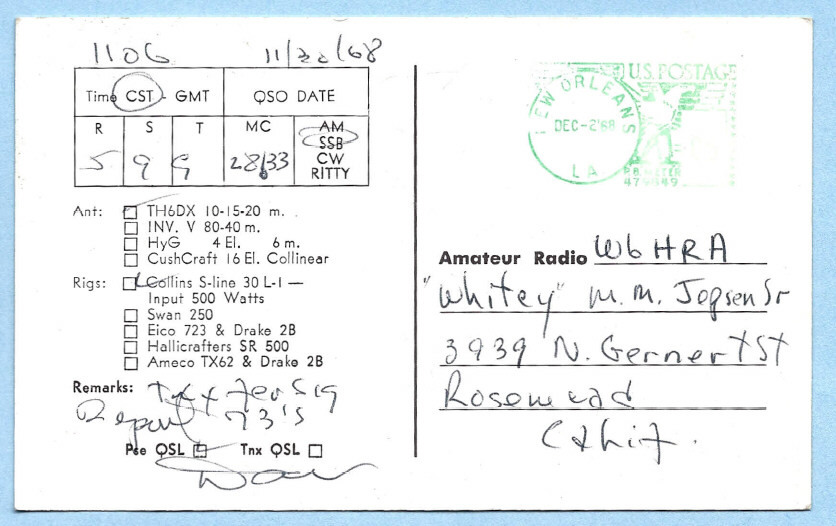 1106 11/22/68
Time CST - GMT QSO DATE
R S T MC AM
SSB
5 9 9 28,33 CW
RITTY
Ant: TH6DX 10-15-20 m.
INV. V 80-40 m.
HyG 4 El. 6 m.
CushCraft 16 El. Collinear
Rigs: Collins S-line 30 L-1 —
Input 500 Watts
Swan 250
Eico 723 & Drake 2B
Hallicrafters SR 500
Ameco TX62 & Drake 2B
Remarks: Tnx fer Sig
Report 73's
Pse QSL Tnx QSL
NEW ORLEANS
DEC-2'68
LA
U.S. POSTAGE
P.B. METER
Amateur Radio W6HRA
"Whitey" M. M. Jepsen Sr
3939 N. Gernert St
Rosemead
Calif.